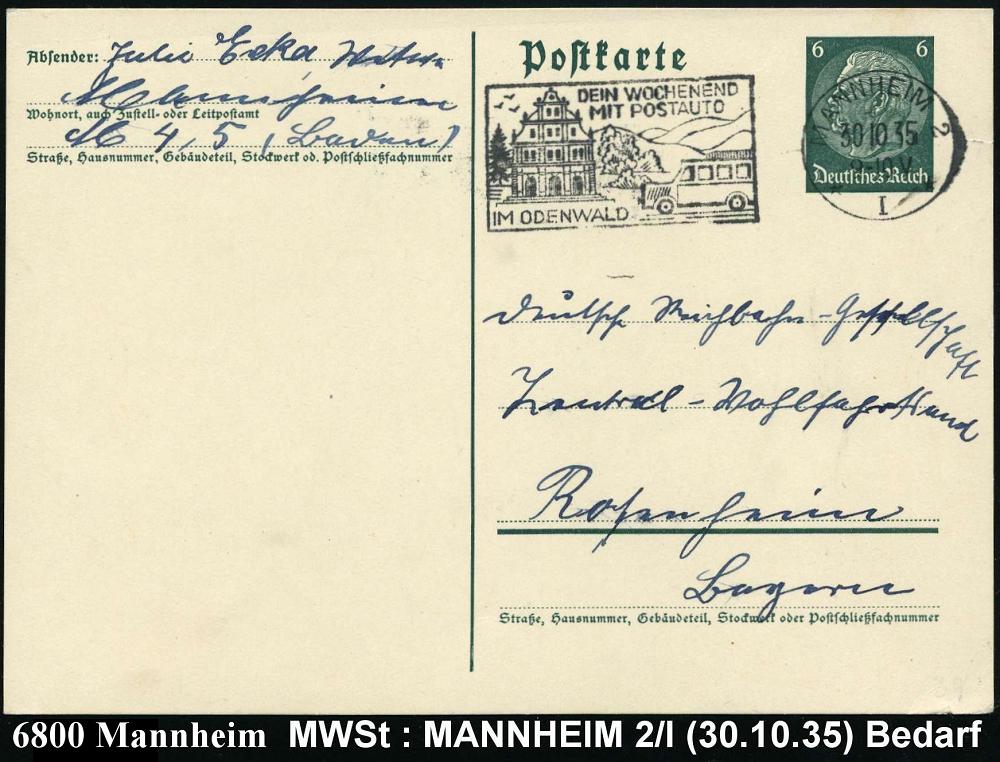 Absender: Julie Ecka Witw.
Mannheim
Wohnort, auch Zustell- oder Leitpostamt
M 4, 5 (Baden)
Straße, Hausnummer, Gebäudeteil, Stockwerk od. Postschließfachnummer
Postkarte
DEIN WOCHENEND
MIT POSTAUTO
IM ODENWALD
6 6
Deutsches Reich
MANNHEIM 2
30.10.35
8-10 V.
I
Deutsche Reichbahn-Gesellschaft
Zentral-Wohlfahrt
Rosenheim
Bayern
Straße, Hausnummer, Gebäudeteil, Stockwerk oder Postschließfachnummer
6800 Mannheim MWSt : MANNHEIM 2/I (30.10.35) Bedarf